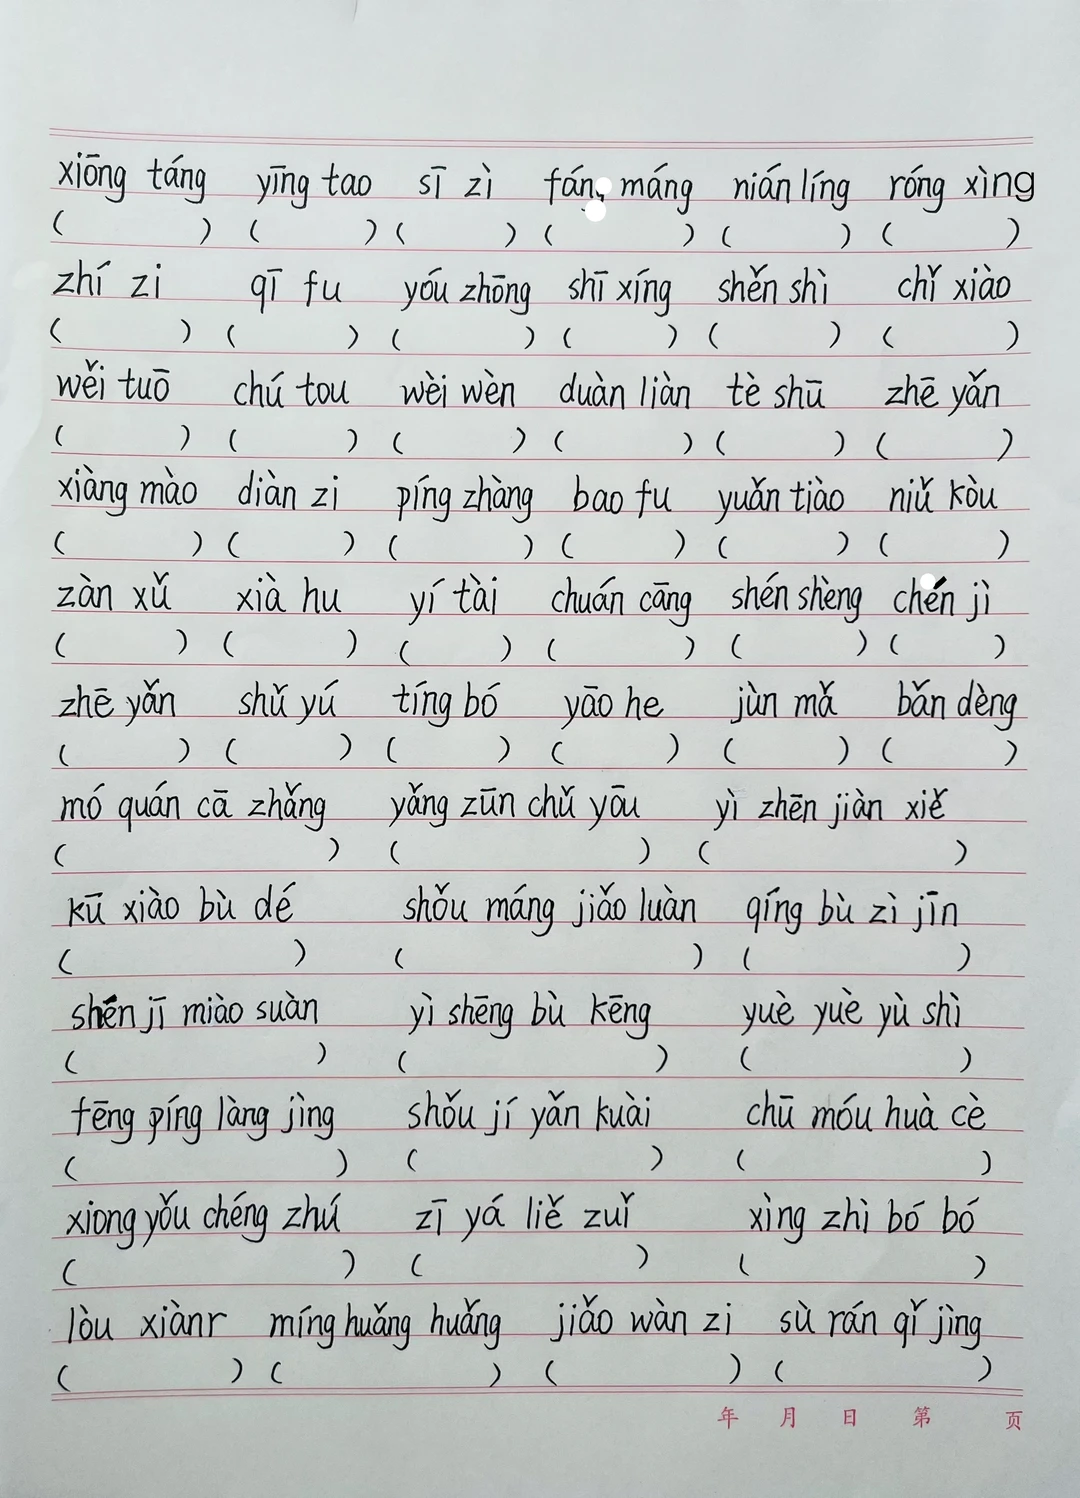 xiōng táng yīng tao sī zì fáng máng nián líng róng xìng
( ) ( ) ( ) ( ) ( ) ( )
zhí zi qī fu yóu zhōng shī xíng shěn shì chǐ xiào
( ) ( ) ( ) ( ) ( ) ( )
wěi tuō chú tou wèi wèn duàn liàn tè shū zhē yǎn
( ) ( ) ( ) ( ) ( ) ( )
xiàng mào diàn zi píng zhàng bao fu yuǎn tiào niǔ kòu
( ) ( ) ( ) ( ) ( ) ( )
zàn xǔ xià hu yí tài chuán cāng shén shèng chén jì
( ) ( ) ( ) ( ) ( ) ( )
zhē yǎn shǔ yú tíng bó yāo he jùn mǎ bǎn dèng
( ) ( ) ( ) ( ) ( ) ( )
mó quán cā zhǎng yǎng zūn chǔ yōu yì zhēn jiàn xiě
( ) ( ) ( )
kū xiào bù dé shǒu máng jiǎo luàn qíng bù zì jīn
( ) ( ) ( )
shén jī miào suàn yì shēng bù kēng yuè yuè yù shì
( ) ( ) ( )
fēng píng làng jìng shǒu jí yǎn kuài chū móu huà cè
( ) ( ) ( )
xiong yǒu chéng zhú zī yá liě zuǐ xìng zhì bó bó
( ) ( ) ( )
lòu xiànr míng huǎng huǎng jiǎo wàn zi sù rán qǐ jìng
( ) ( ) ( ) ( )
年 月 日 第 页